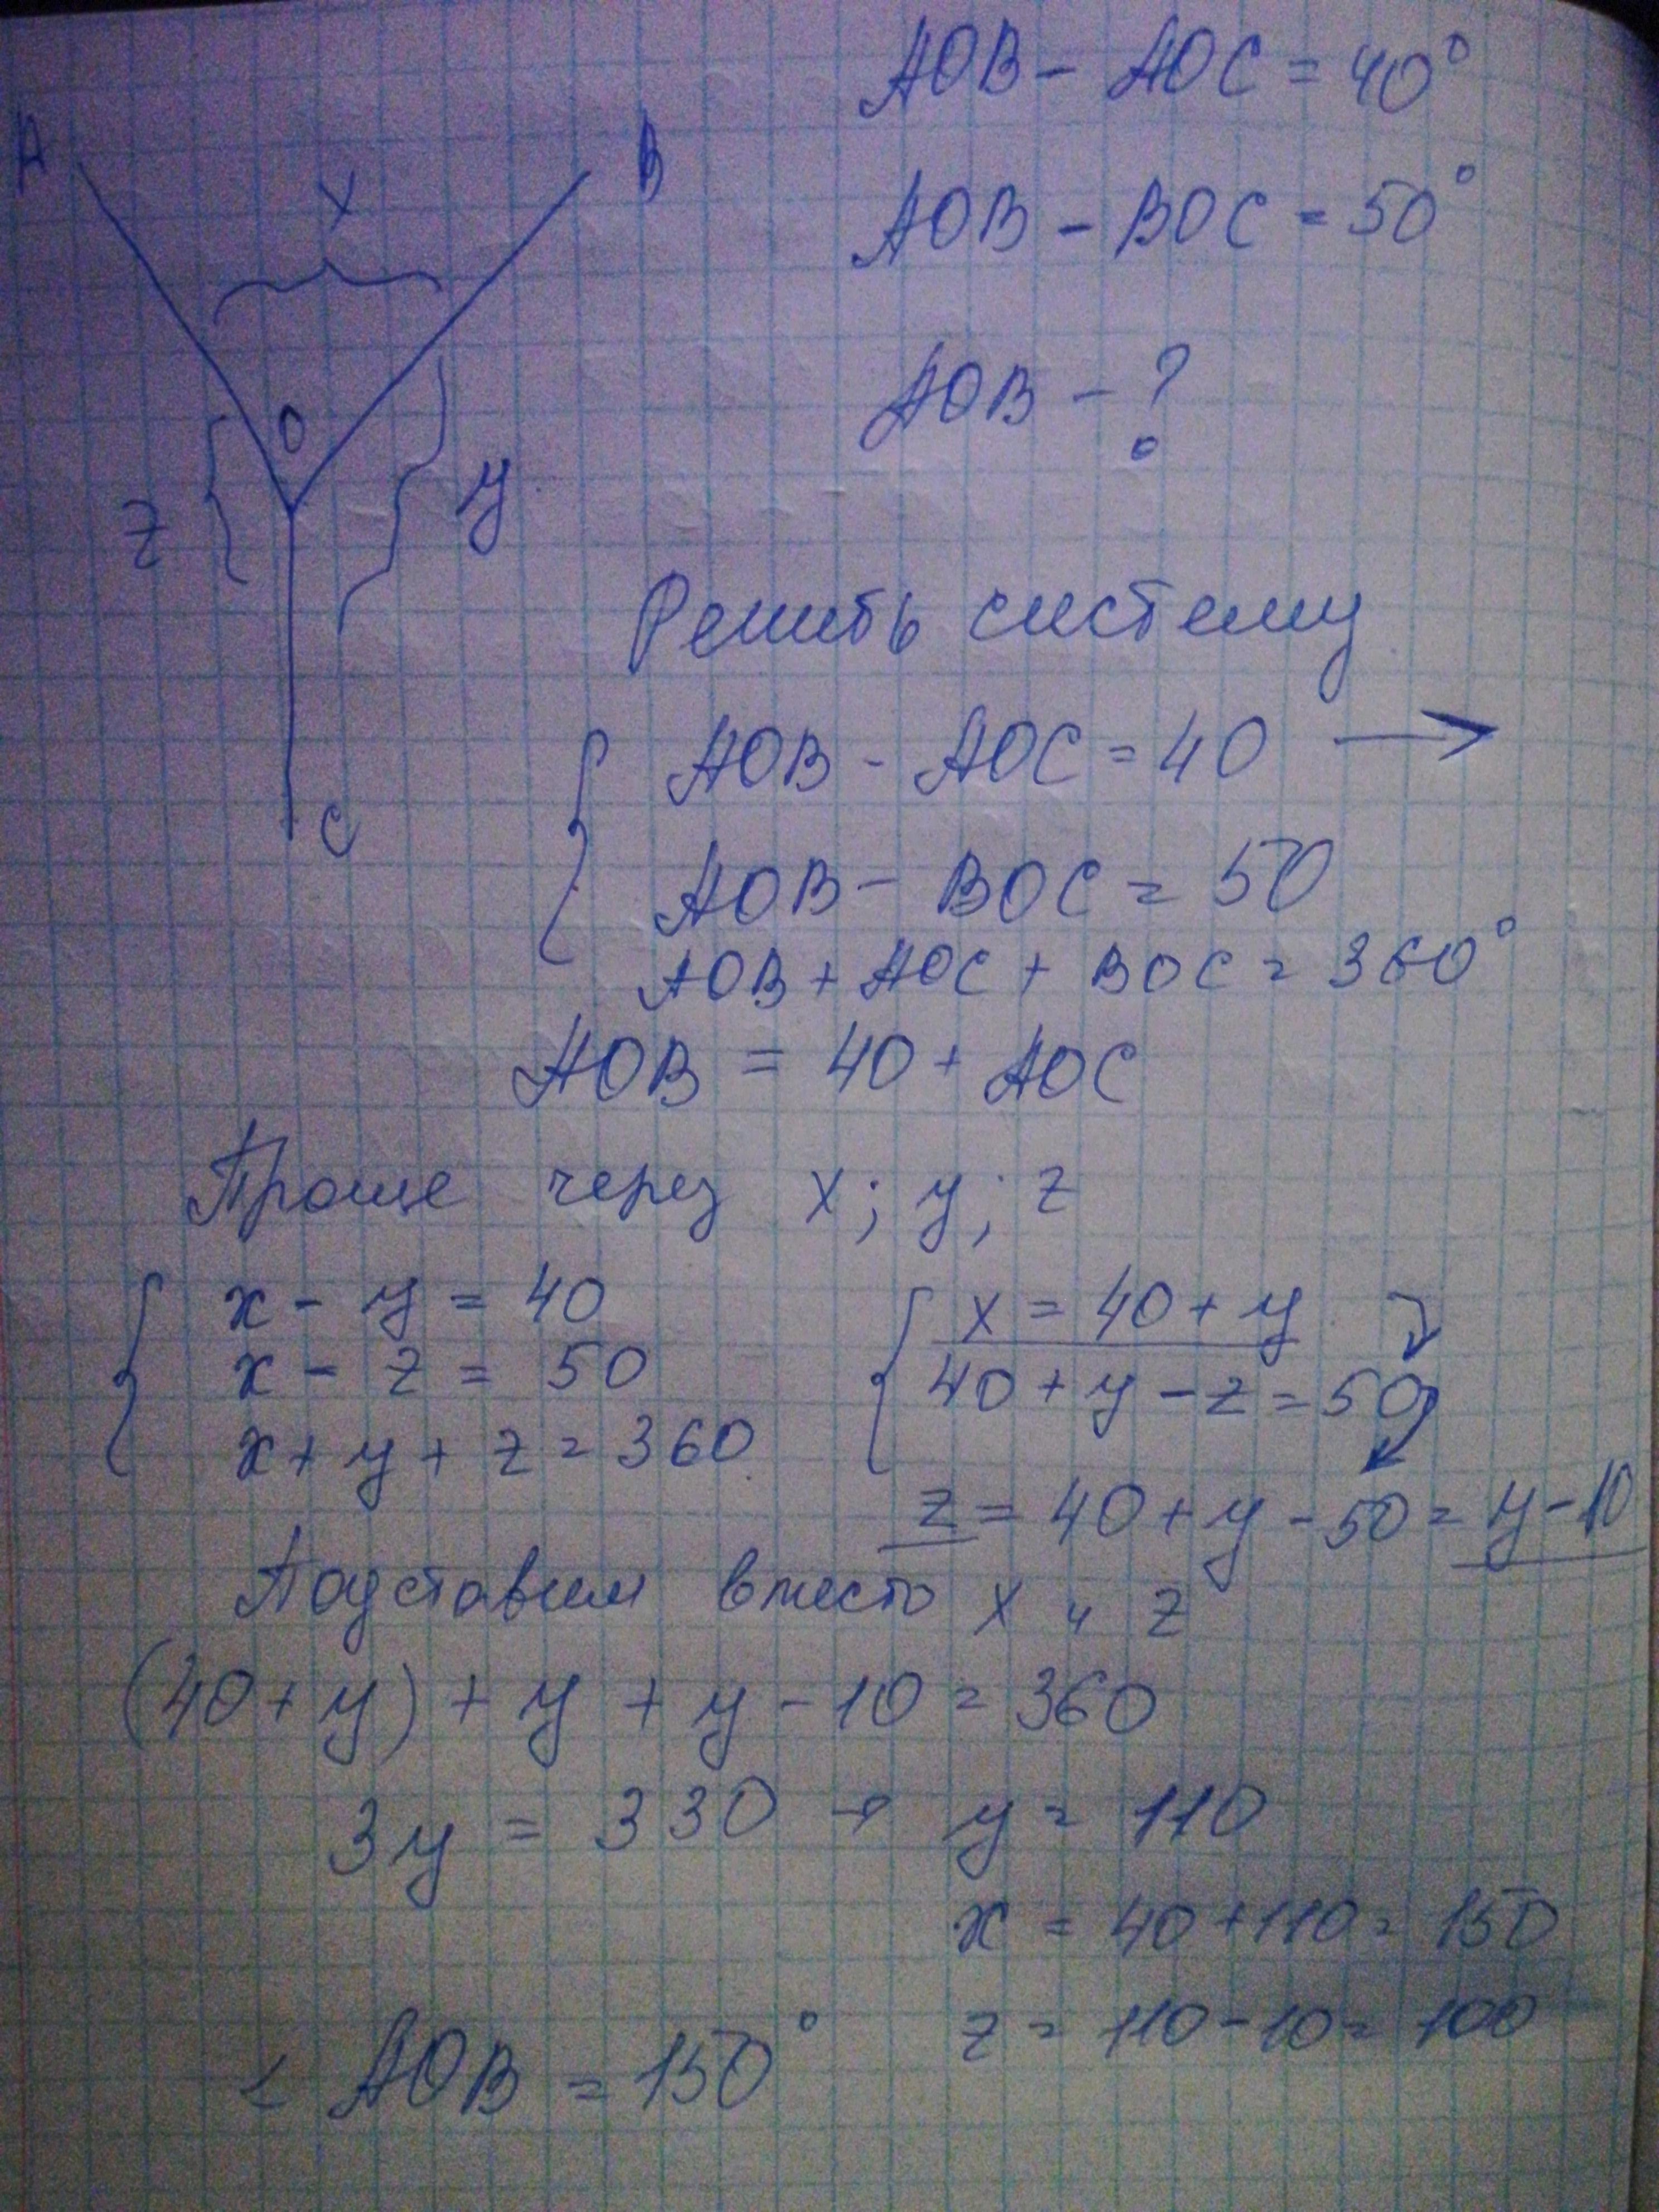 AOB - AOC = 40°
AOB - BOC = 50°
AOB - ?
A
B
x
O
z
y
C
Решить систему
AOB - AOC = 40 →
AOB - BOC = 50
AOB + AOC + BOC = 360°
AOB = 40 + AOC
Проще через x; y; z
x - y = 40
x - z = 50
x + y + z = 360
x = 40 + y
40 + y - z = 50
z = 40 + y - 50 = y - 10
Подставим вместо x и z
(40 + y) + y + y - 10 = 360
3y = 330 → y = 110
x = 40 + 110 = 150
z = 110 - 10 = 100
∠ AOB = 150°